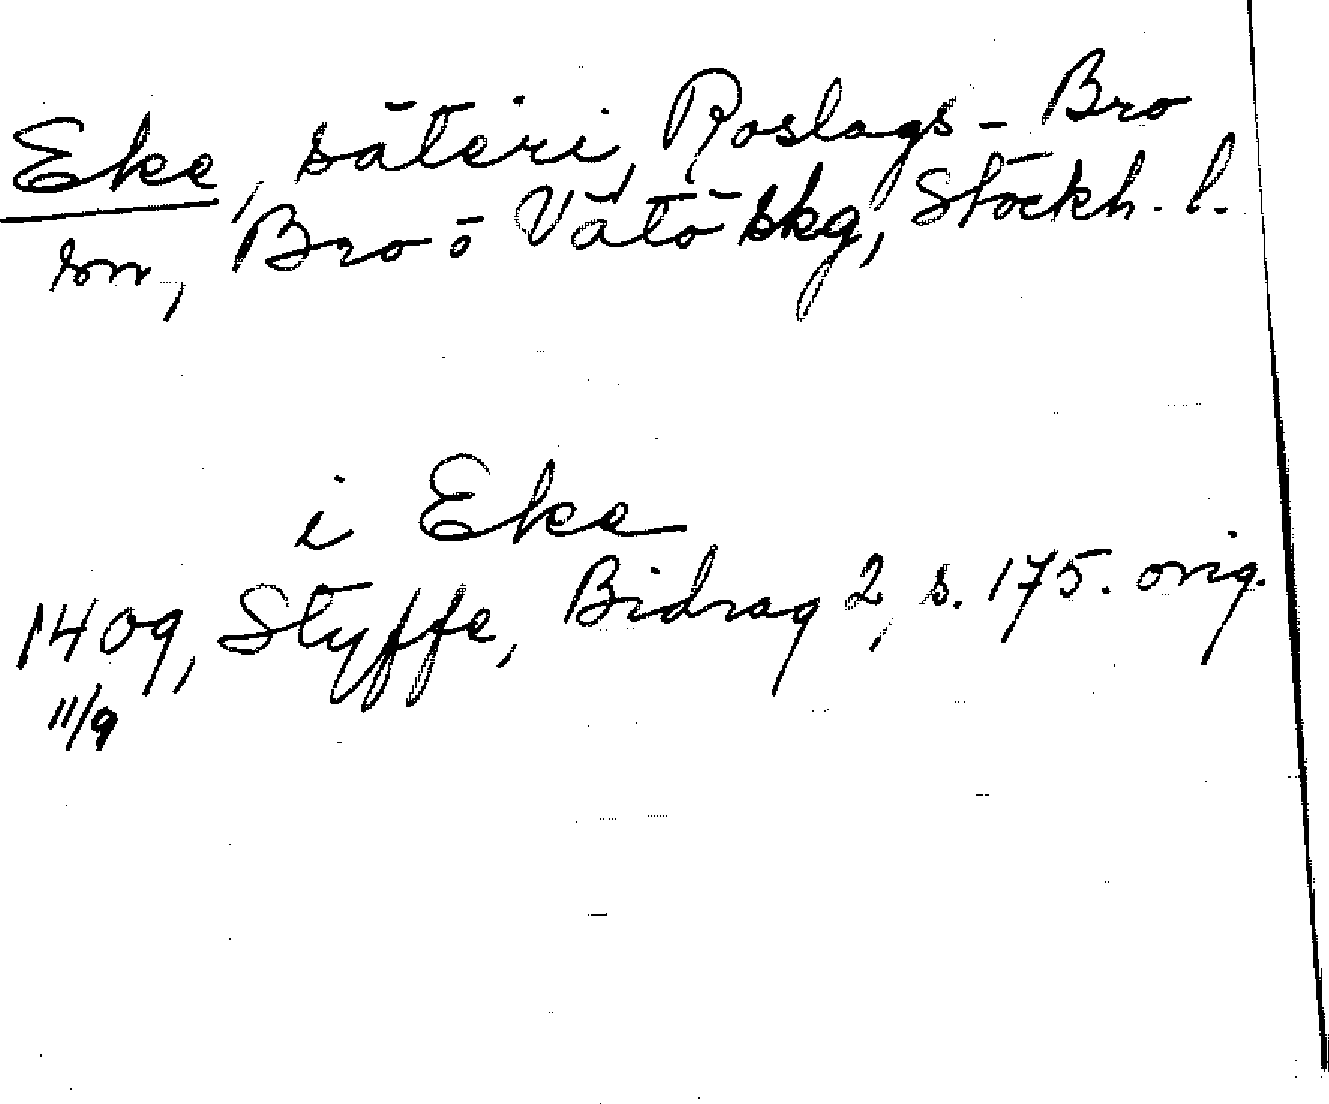 Eke, säteri, Roslags-Bro
sn, Bro o Vätö skg, Stockh. l.
i Eke
1409, Styffe, Bidrag 2, s. 175. orig.
11/9